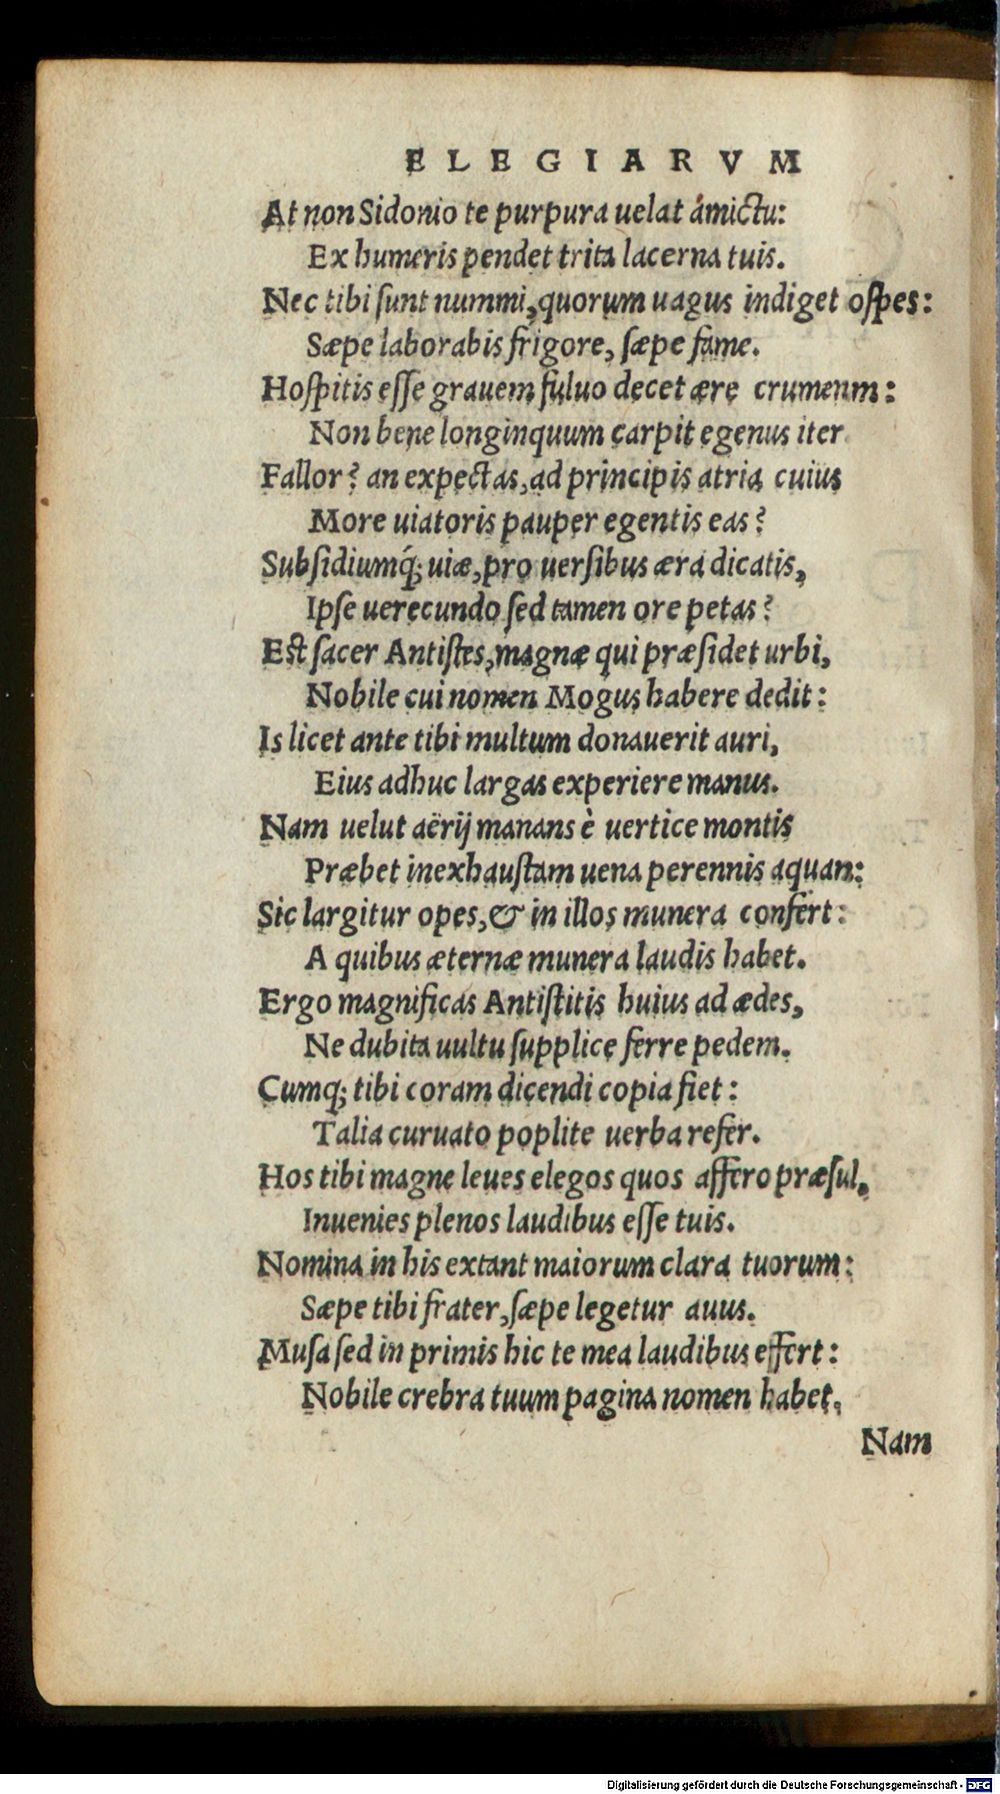 ELEGIARVM
At non Sidonio te purpura uelat ámictu:
Ex humeris pendet trita lacerna tuis.
Nec tibi sunt nummi, quorum uagus indiget ospes:
Sæpe laborabis frigore, sæpe fame.
Hospitis esse grauem fuluo decet ære crumenam:
Non bene longinquum carpit egenus iter
Fallor? an expectas, ad principis atria cuius
More uiatoris pauper egentis eas?
Subsidiumq́; uiæ, pro uersibus æra dicatis,
Ipse uerecundo sed tamen ore petas?
Est sacer Antistes, magnæ qui præsidet urbi,
Nobile cui nomen Mogus habere dedit:
Is licet ante tibi multum donauerit auri,
Eius adhuc largas experiere manus.
Nam uelut aërij manans è uertice montis
Præbet inexhaustam uena perennis aquan:
Sic largitur opes, & in illos munera confert:
A quibus æternæ munera laudis habet.
Ergo magnificas Antistitis huius ad ædes,
Ne dubita uultu supplice ferre pedem.
Cumq; tibi coram dicendi copia fiet:
Talia curuato poplite uerba refer.
Hos tibi magne leues elegos quos affero præsul,
Inuenies plenos laudibus esse tuis.
Nomina in his extant maiorum clara tuorum:
Sæpe tibi frater, sæpe legetur auus.
Musa sed in primis hic te mea laudibus effert:
Nobile crebra tuum pagina nomen habet,
Nam
Digitalisierung gefördert durch die Deutsche Forschungsgemeinschaft - DFG